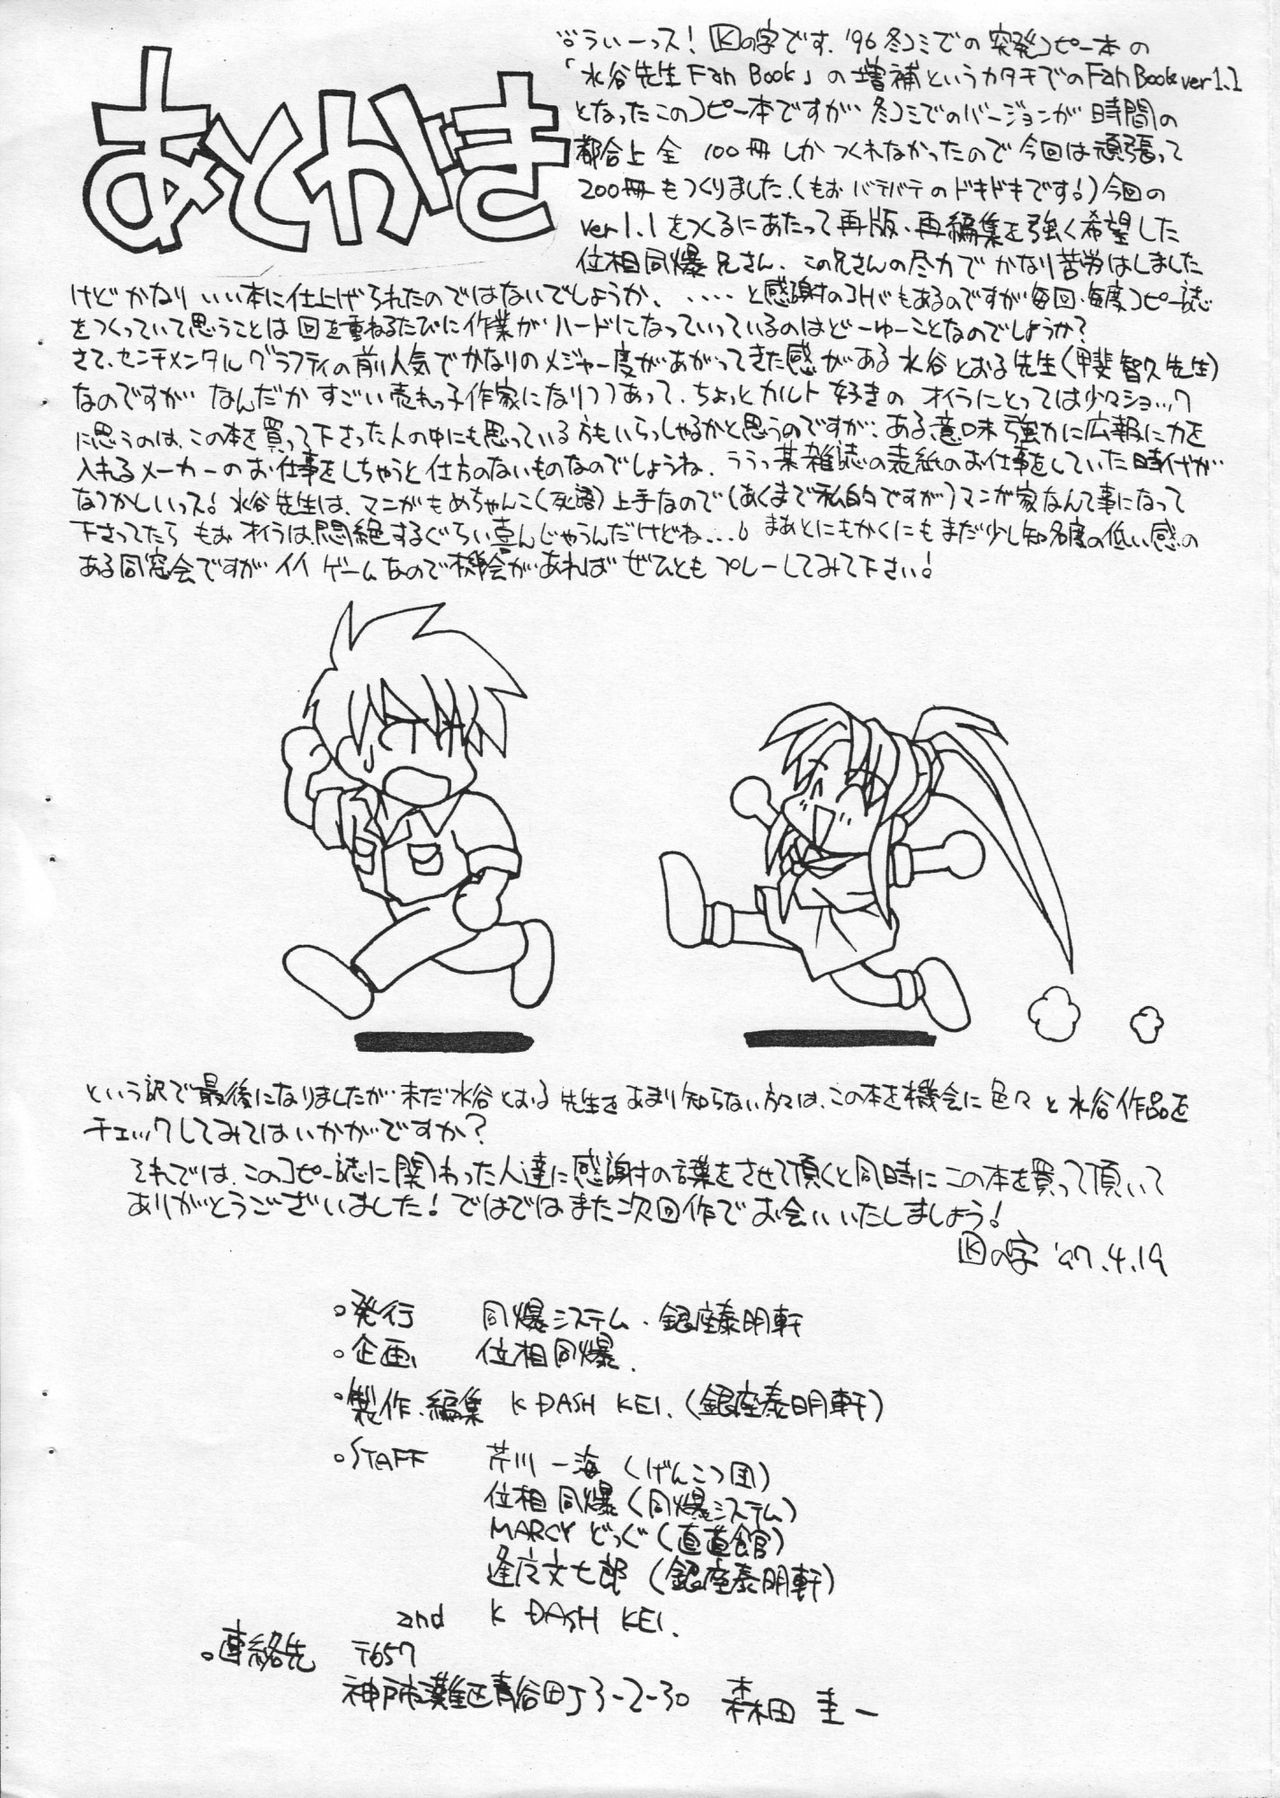 あとがき
。うぃーっス！Kの字です。'96冬コミでの突発コピー本の
「水谷先生Fan Book」の増補というカタチでのFan Book ver1.1
となったこのコピー本ですが冬コミでのバージョンが時間の
都合上全100冊しかつくれなかったので今回は頑張って
200冊もつくりました。(もおバテバテのドキドキです!)今回の
ver1.1をつくるにあたって再版、再編集を強く希望した
位相同爆兄さん、この兄さんの尽力でかなり苦労はしました
けどかなりいい本に仕上げられたのではないでしょうか、‥‥と感謝のコトバもあるのですが毎回・毎度コピー誌
をつくっていて思うことは回を重ねるたびに作業がハードになっていっているのはどーゆーことなのでしょうか？
さて、センチメンタルグラフティの前人気でかなりのメジャー度があがってきた感がある水谷とおる先生(甲斐智久先生)
なのですがなんだかすごい売れっ子作家になりつつあって、ちょっとカルト好きのオイラにとっては少々ショック
に思うのは、この本を買って下さった人の中にも思っている方もいらっしゃるかと思うのですが、ある意味強力に広報に力を
入れるメーカーのお仕事をしちゃうと仕方のないものなのでしょうね、ううっ某雑誌の表紙のお仕事をしていた時代が
なつかしいっス！水谷先生は、マンガもめちゃんこ(死語)上手なので(あくまで私的ですが)マンガ家なんて事になって
下さってたらもおオイラは悶絶するぐらい喜んじゃうんだけどね…。まあとにもかくにもまだ少し知名度の低い感の
ある同窓会ですがイイゲームなので機会があればぜひともプレーしてみて下さい！
という訳で最後になりましたが未だ水谷とおる先生をあまり知らない方々は、この本を機会に色々と水谷作品を
チェックしてみてはいかがですか？
それでは、このコピー誌に関わった人達に感謝の言葉をさせて頂くと同時にこの本を買って頂いて
ありがとうございました！ではではまた次回作でお会いいたしましょう！
Kの字 '97.4.19
。発行 同爆システム・銀座泰明軒
。企画 位相同爆
。製作・編集 K DASH KEI.(銀座泰明軒)
。STAFF 芹川一海(げんこつ団)
位相同爆(同爆システム)
MARCYどっぐ(直道館)
逢広文七郎(銀座泰明軒)
and K DASH KEI.
。連絡先 〒657
神戸市灘区青谷町3-2-30 森田圭一